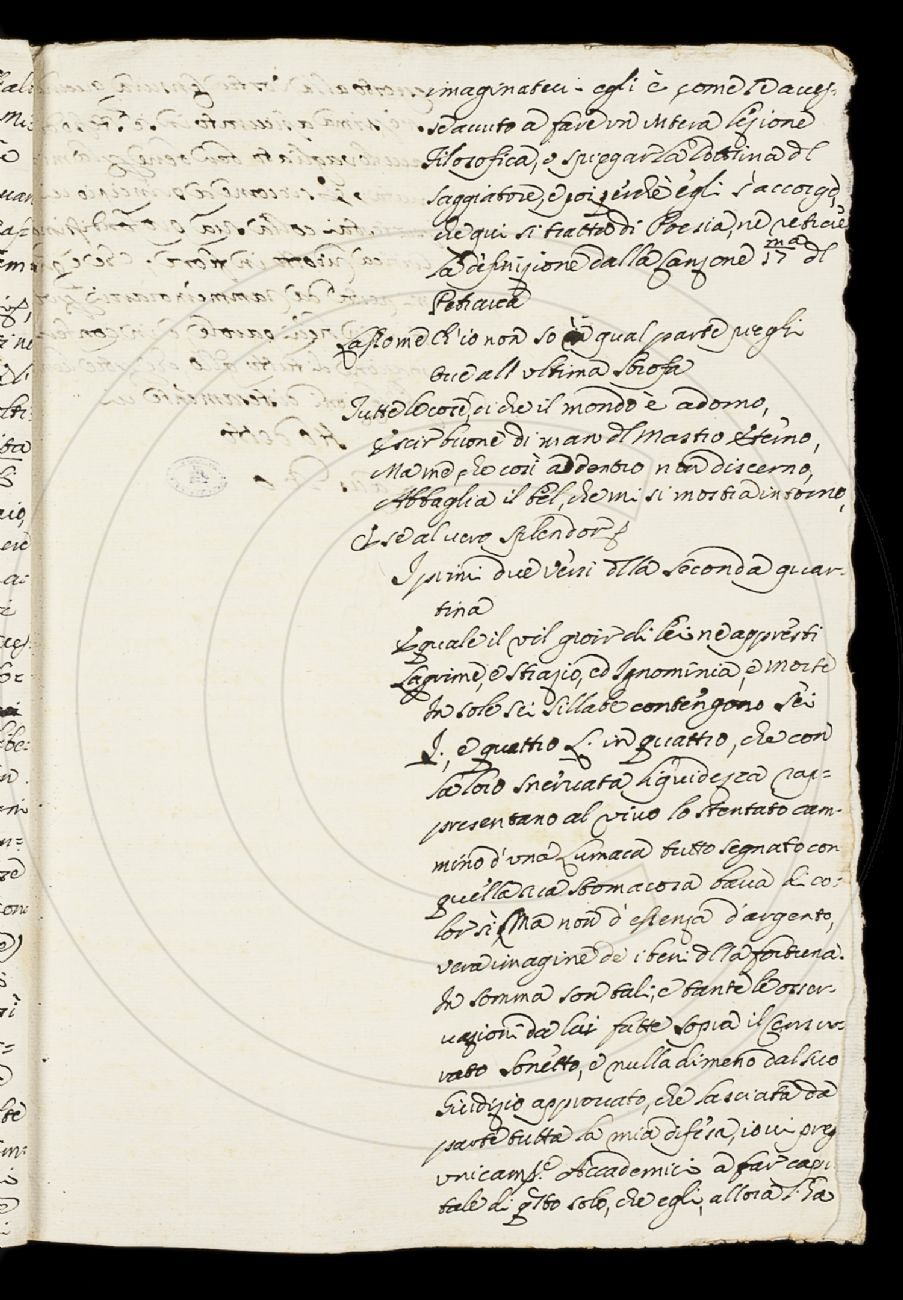 imaginatevi. egli è come se aves-
se avuto a fare un intera lezione
Filosofica, e spiegar la dottrina dl
saggiatore, e poi perchè egli s'accorge,
che qui si tratta di Poesia, ne
la definizione dalla Canzone 17ma dl
Petrarca
Lasso me ch'io non so in qual parte pieghi
Ove all ultima strofa
Tutte le cose, di che il mondo è adorno,
Uscir buone di man dl Mastro Eterno,
Ma me, che così adentro non discerno,
Abbaglia il bel, che mi si mostra intorno,
E se al vero splendor
I primi due versi dlla seconda quar-
tina
E quale il vil gioir di lei ne appresti
Lagrime, e strazio, ed Ignominia, e Morte
In sole sei sillabe contengono sei
I., e quattro L. in quattro, che con
la loro snervata liquidezza rap-
presentano al vivo lo stentato cam-
mino d'una Lumaca tutto segnato con
quella sua stomacosa bava di co-
lor sì, Ma non d'essenza d'argento,
vera imagine de i beni dlla fortuna.
In somma son tali, e tante le osser-
vazioni da lui fatte sopra il censu-
rato sonetto, e nulladimeno dal suo
Giudizio approvato, che lasciata da
parte tutta la mia difesa, io vi preg
unicamte. Accademici a far capi-
tale di qsto solo, che egli, allora l'ha